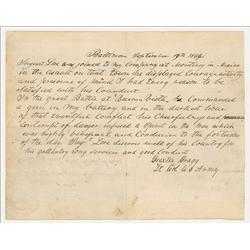 Baltimore September 19th 1848
Sergeant Lee was joined to my Company at Monterey in Mexico
in the assault on that town he displayed Courage activity
and presence of mind I had every reason to be
satisfied with his Conduct
In the great Battle at Buena Vista, he Commanded
a gun in my Battery and in the darkest hour
of that eventful Conflict his Cheerfulness and
Contempt of danger infused a spirit in the Men which
was highly important and Conducive to the fortunes
of the day Sergt Lee deserves well of his Country for
his gallantry long Service and good Conduct
Braxton Bragg
Lt Col U S Army